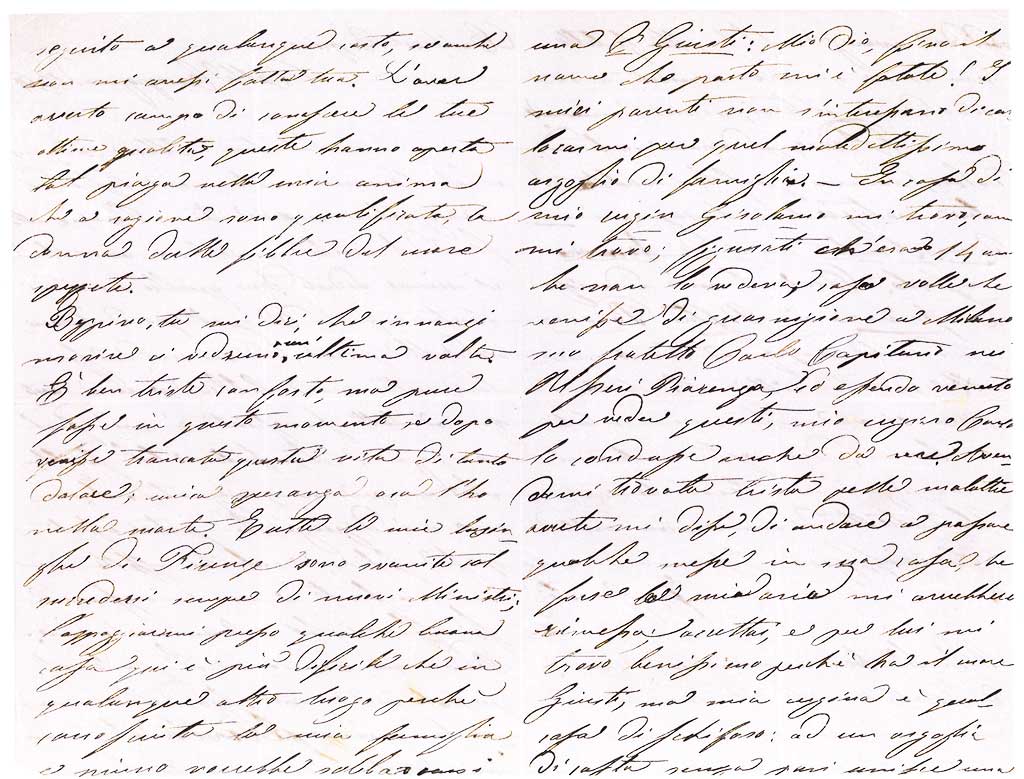 seguito a qualunque costo, se anche
non mi avessi fatta tua. L'aver
avuto campo di conoscere le tue
ottime qualità, queste hanno aperta
tal piaga nella mia anima
che a ragione sono qualificata, la
donna dalle fibbre del cuore
spezzate.
Beppino, tu mi dici, che innanzi
morire ci vedremo, un'ultima volta.
È ben triste conforto, ma pure
fosse in questo momento se dopo
venisse troncata questa vita di tanto
dolore; unica speranza ora l'ho
nella morte. Tutte le mie lusin-
ghe di Firenze sono svanite col
succedersi sempre di nuovi Ministri;
l'appoggiarmi presso qualche buona
casa qui è più difficile che in
qualunque altro luogo perché
conosciuta la mia famiglia
e niuno vorrebbe
una Giusti: Mio Dio, persino il
nome che porto mi è fatale! I
miei parenti non s'interessano di co
locarmi per quel maledettissimo
orgoglio di famiglia. — In casa di
mio cugin Girolamo mi trovo, com
mi trovo; figurati ch'erano 14 an
che non lo vedeva, caso volle che
venisse di guarnigione a Milano
suo fratello Carlo Capitano nei
Usseri Piacenza, ed essendo venuto
per veder questi, mio cugino Carlo
lo condusse anche da me. Aven-
domi trovata trista pelle malattie
avute mi disse, di andare a passare
qualche mese in sua casa, che
forse la mia aria mi avrebbe
rimessa; accettai, e per lui mi
trovo benissimo perché ha il cuore
Giusti, ma mia cugina è qual-
cosa di schifoso: ad un orgoglio
di casta senza pari unisce una